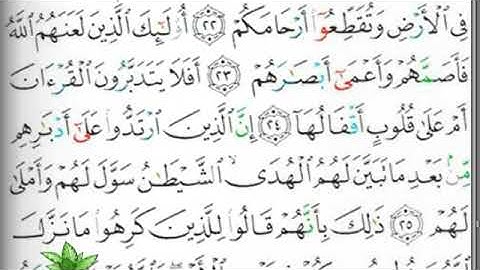 فِى ٱلْأَرْضِ وَتُقَطِّعُوٓا۟ أَرْحَامَكُمْ ٢٢ أُو۟لَٰٓئِكَ ٱلَّذِينَ لَعَنَهُمُ ٱللَّهُ
فَأَصَمَّهُمْ وَأَعْمَىٰٓ أَبْصَٰرَهُمْ ٢٣ أَفَلَا يَتَدَبَّرُونَ ٱلْقُرْءَانَ
أَمْ عَلَىٰ قُلُوبٍ أَقْفَالُهَآ ٢٤ إِنَّ ٱلَّذِينَ ٱرْتَدُّوا۟ عَلَىٰٓ أَدْبَٰرِهِم
مِّنۢ بَعْدِ مَا تَبَيَّنَ لَهُمُ ٱلْهُدَى ٱلشَّيْطَٰنُ سَوَّلَ لَهُمْ وَأَمْلَىٰ
لَهُمْ ٢٥ ذَٰلِكَ بِأَنَّهُمْ قَالُوا۟ لِلَّذِينَ كَرِهُوا۟ مَا نَزَّلَ